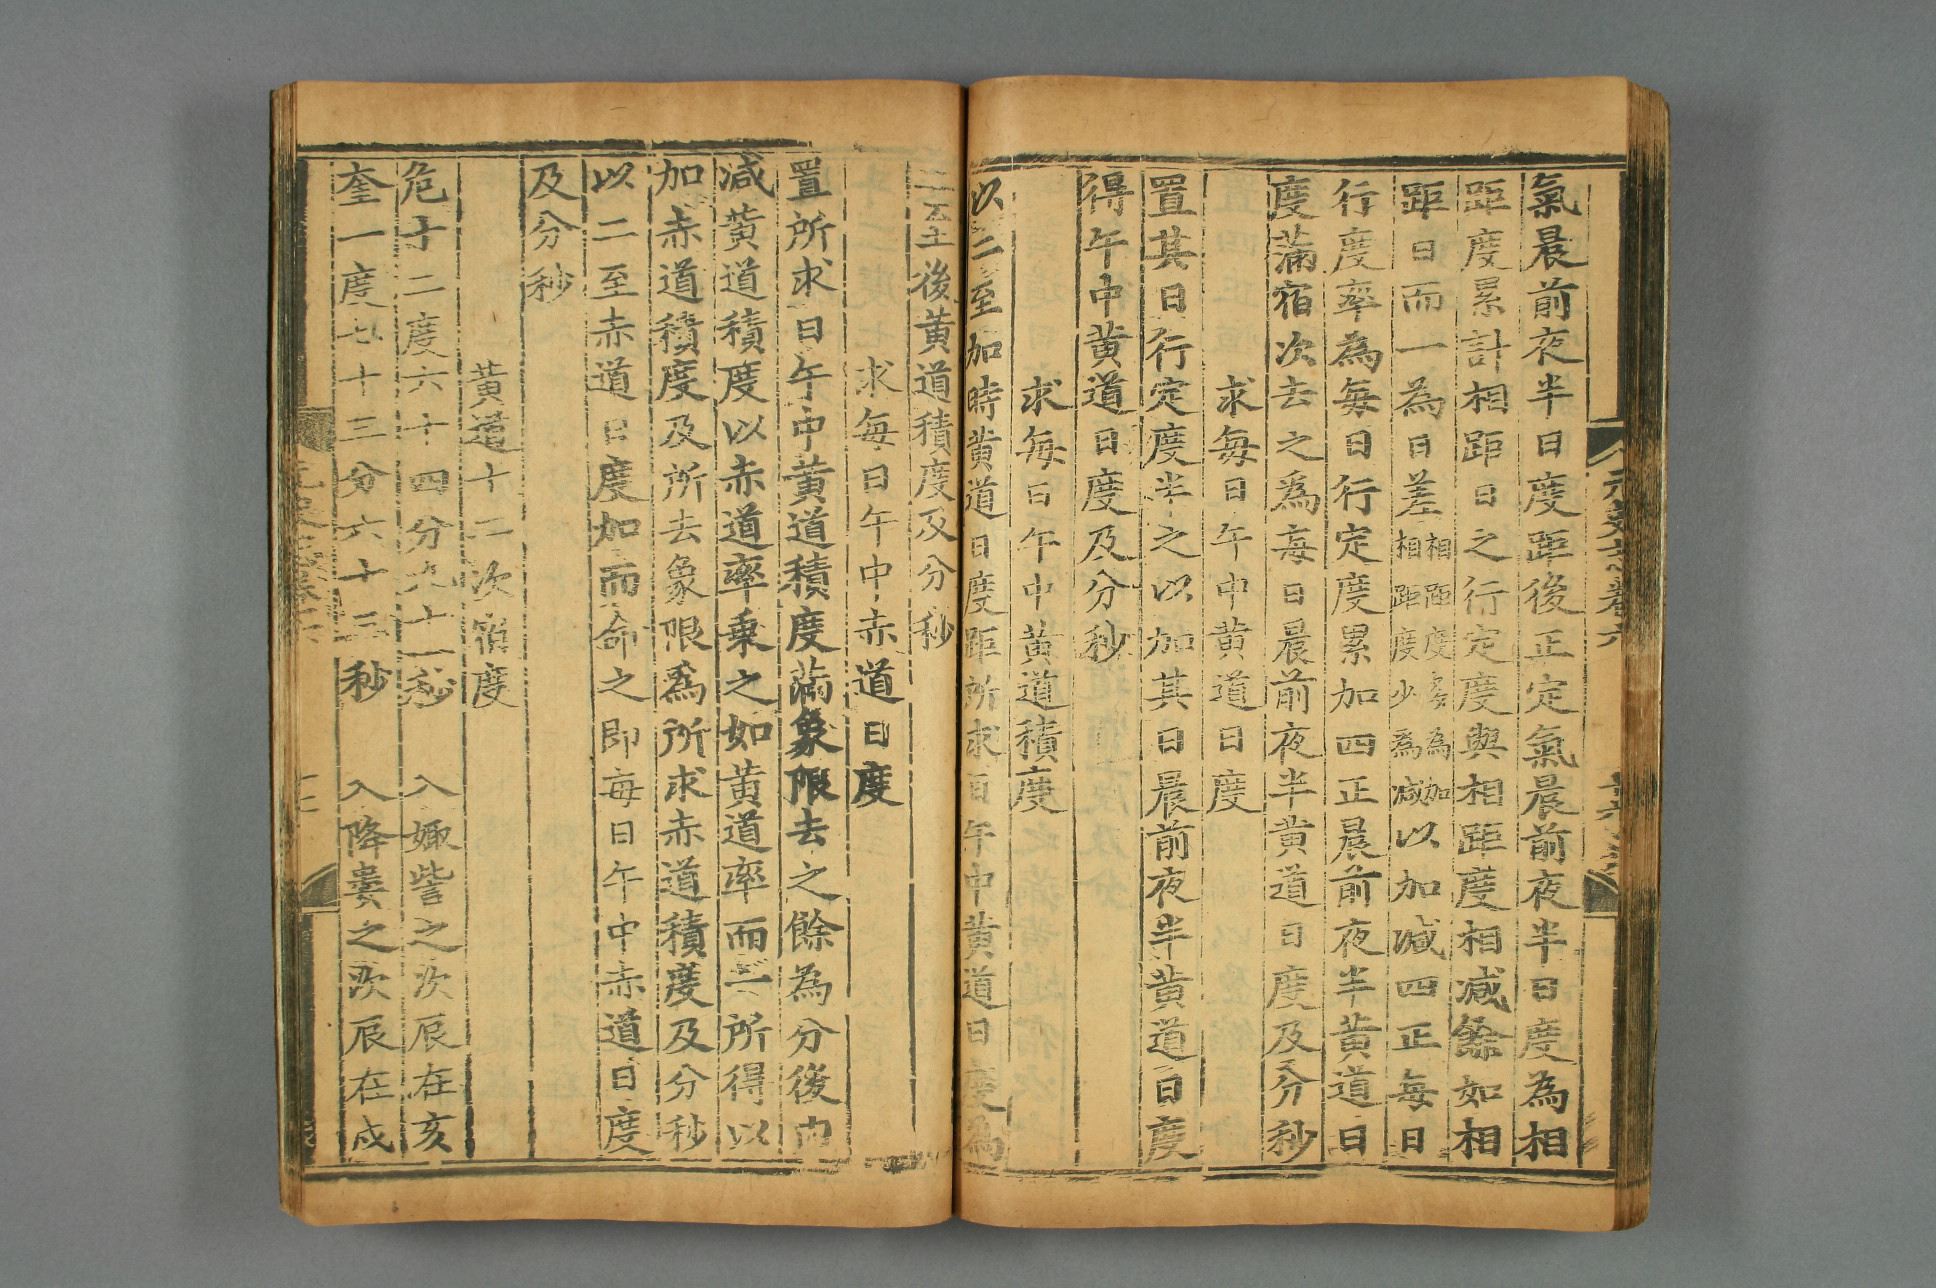 氣晨前夜半日度距後正定氣晨前夜半日度為相
距度累計相距日之行定度與相距度相減餘如相
距日而一為日差相距度多為加相距度少為減以加減四正每日
行度率為每日行定度累加四正晨前夜半黃道日
度滿宿次去之為每日晨前夜半黃道日度及分秒
求每日午中黃道日度
置其日行定度半之以加其日晨前夜半黃道日度
得午中黃道日度及分秒
求每日午中黃道積度
以二至加時黃道日度距所求日午中黃道日度為
二至後黃道積度及分秒
求每日午中赤道日度
置所求日午中黃道積度滿象限去之餘為分後內
減黃道積度以赤道率乘之如黃道率而一所得以
加赤道積度及所去象限為所求赤道積度及分秒
以二至赤道日度加而命之即每日午中赤道日度
及分秒
黃道十二次宿度
危十二度六十四分九十一秒 入娵訾之次辰在亥
奎一度七十三分六十三秒 入降婁之次辰在戌